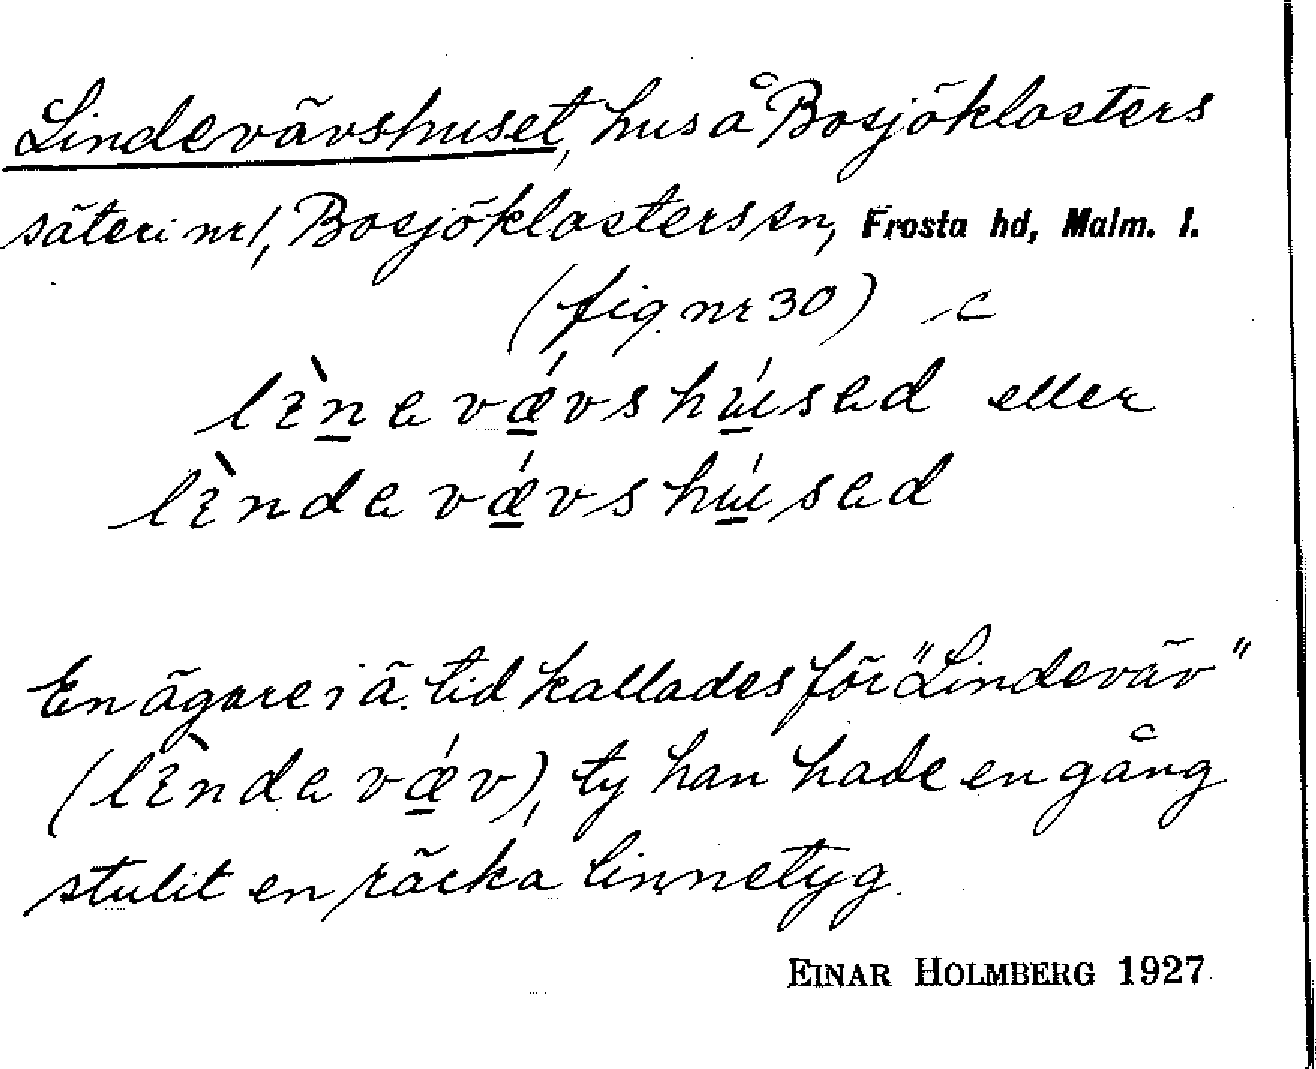 Lindevävshuset, hus å Bosjöklosters
säteri nr 1, Bosjöklosters sn, Frosta hd, Malm. l.
(fig. nr 30) c
lìnavǽvshúsad eller
lìndavǽvshúsad
En ägare i ä. tid kallades för "Lindeväv"
(lìndavǽv), ty han hade en gång
stulit en räcka linnetyg.
EINAR HOLMBERG 1927